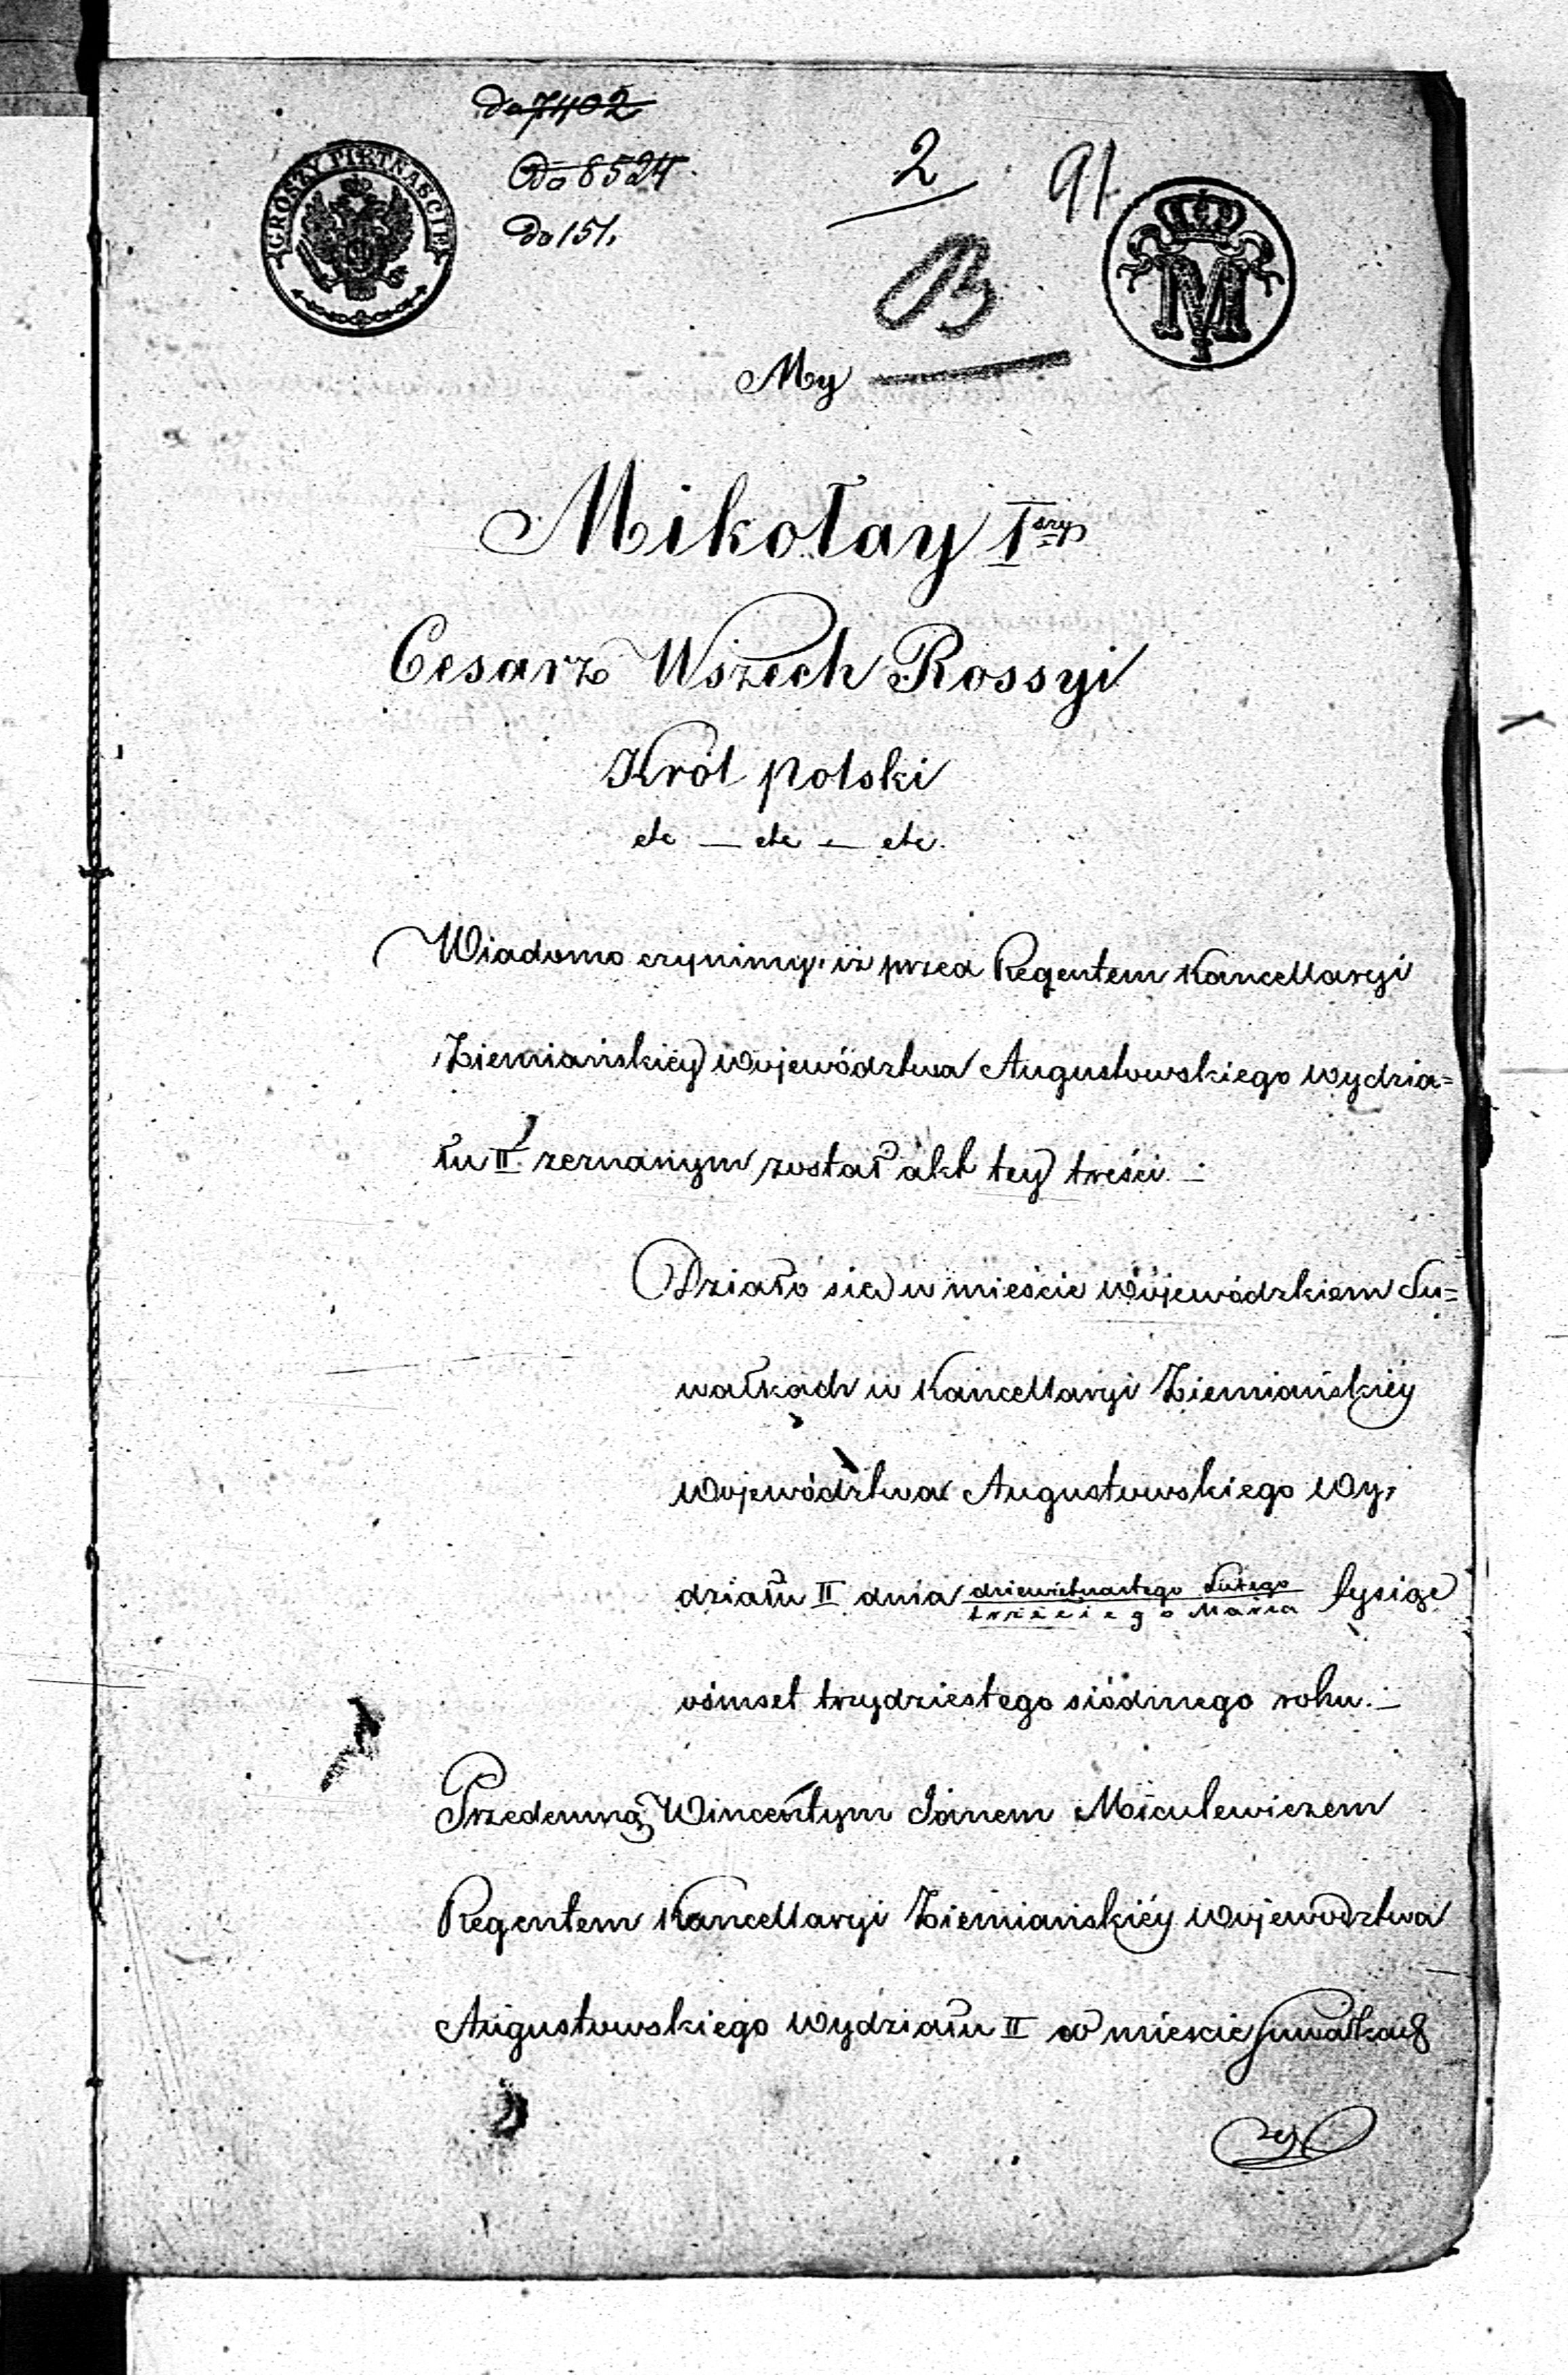 do 7402
Do 8524
Do 151.
2
91
GROSZY PIĘTNAŚCIE
M
B
My
Mikołay Iszy
Cesarz Wszech Rossyi
Król polski
etc — etc — etc.
Wiadomo czynimy, iż przed Regentem Kancellaryi
Ziemiańskiéy Województwa Augustowskiego Wydzia=
łu II zeznanym został akt tey treści. —
Działo się w mieście Wojewódzkiem Su=
wałkach w Kancellaryi Ziemiańskiéy
Województwa Augustowskiego Wy,
działu II dnia dziewiętnastego Lutego tysiąc
trzeciego Marca
ośmset trzydziestego siódmego roku. —
Przedemną Wincentym Janem Miculewiczem
Regentem Kancellaryi Ziemiańskiéy Województwa
Augustowskiego Wydziału II w mieście Suwałkach